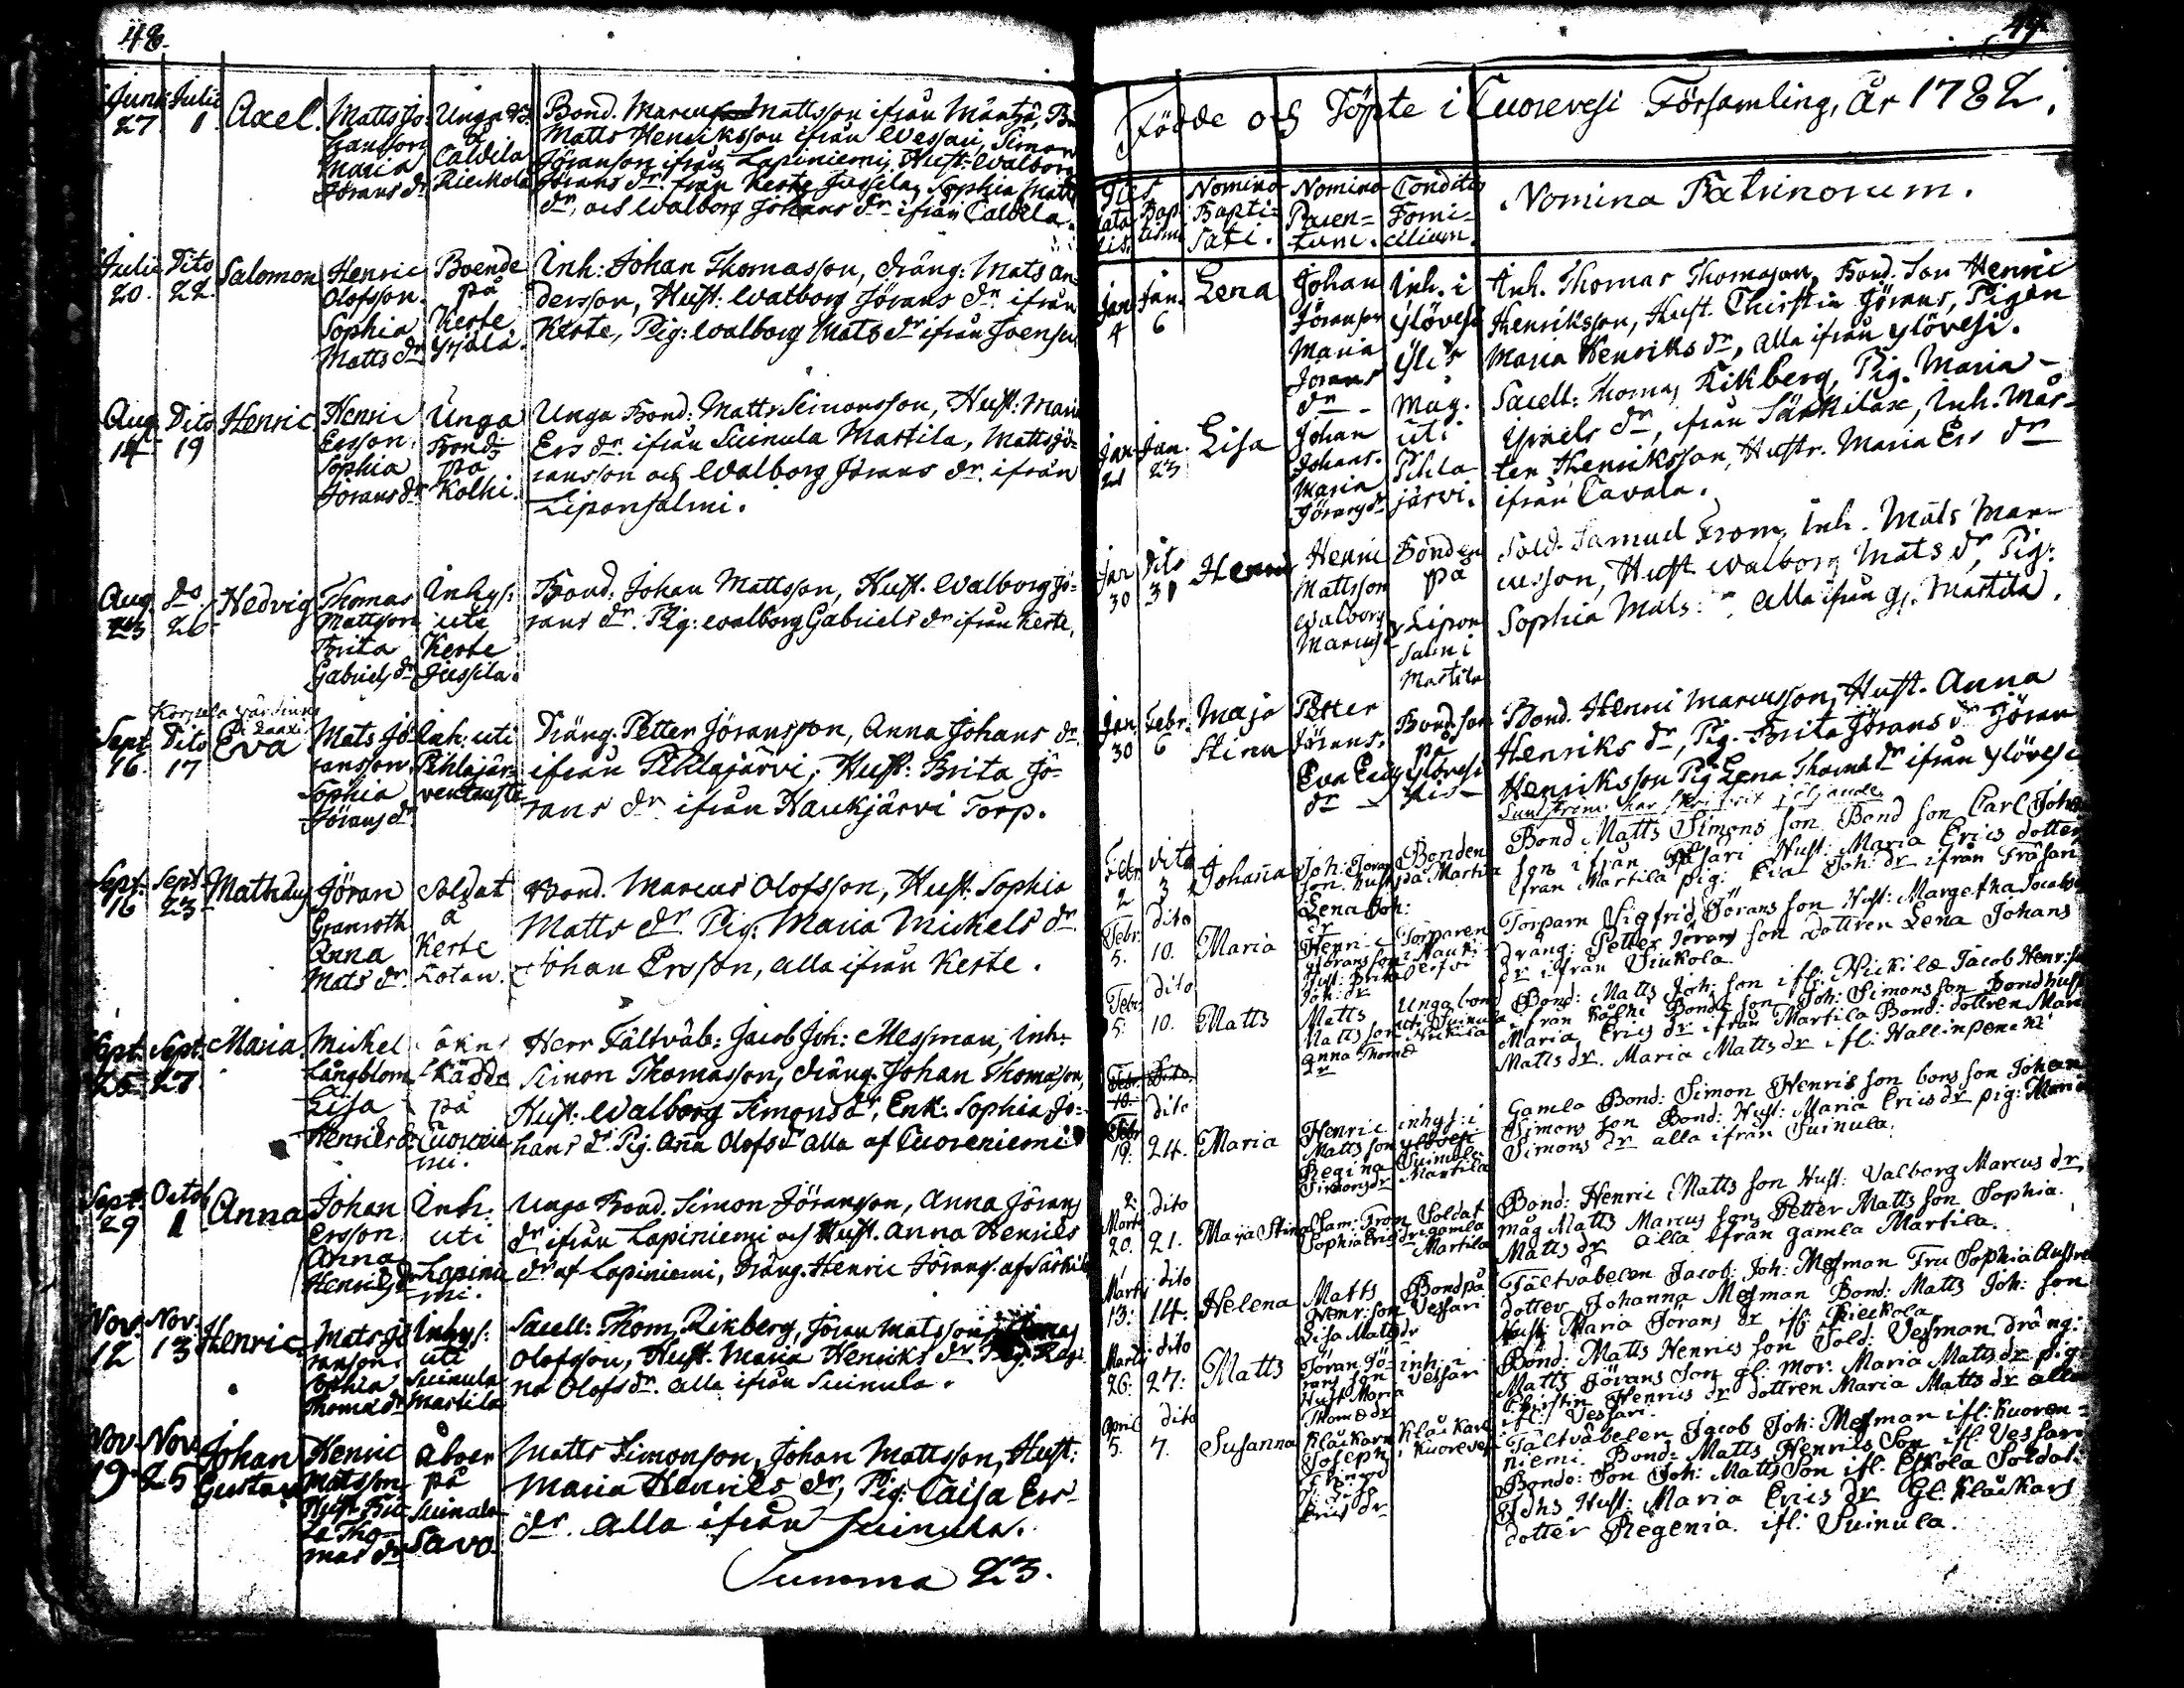 48.
Junii 27
Julii 1
Axel.
Matts Jö-
hansson
Maria
Jörans dr
Unga B:
å
Caldila
Rieckola
Bond. Marcus Mattsson ifrån Mäntjä,
Matts Henriksson ifrån Wessari, Simon
Jöranson ifrån Lapiniemi, Hust: Walborg
Jörans dr. från Keste Jussila, Sophia Matts
dr, och Walborg Johans dr ifrån Caldila.
Julii 20.
Dito 22.
Salomon
Henric
Olofsson.
Sophia
Matts dr
Boende
på
Keste
Yrjälä.
Inh: Johan Thomasson, dräng: Mats An-
dersson, Hust: Walborg Jörans dr ifrån
Keste, Pig: Walborg Mats dr ifrån Joensu
Aug 14
Dito 19
Henric
Henric
Ersson.
Sophia
Jörans dr
Unga
Bond:
på
Kolhi.
Unga Bond: Matts Simonsson, Hust: Maria
Ers dr. ifrån Suinula Martila, Matts Jö-
ransson och Walborg Jörans dr. ifrån
Liponsalmi.
Aug 23
do 26.
Hedvig
Thomas
Mattsson
Brita
Gabriels dr
Inhys:
uti
Keste
Jussila.
Bond: Johan Mattsson, Hust. Walborg Jö-
rans dr. Pig: Walborg Gabriels dr ifrån Keste.
Sept 16.
Dito 17
Eva
Mats Jö-
ransson,
Sophia
Jörans dr.
Inh: uti
Pihlajär-
ventausta
Dräng. Petter Jöransson, Anna Johans dr.
ifrån Pihlajärvi, Hust: Brita Jö-
rans dr ifrån Haukjärvi Torp.
Sept. 16
Sept 23
Mathaus
Jöran
Granroth
Anna
Mats dr.
Soldat
å
Keste
Kotan.
Bond. Marcus Olofsson, Hust. Sophia
Matts dr. Pig: Maria Mickels dr
Johan Ersson, alla ifrån Keste.
Sept. 25
Sept. 27
Maria.
Mickel
Långblom
Lisa
Henrics d:
på
Cuorenie
mi.
Herr Fältväb: Jacob Joh: Messman, Inh:
Simon Thomasson, dräng. Johan Thomasson,
Hust: Walborg Simons dr, Enk: Sophia Jo-
hans dr. Pig. Anna Olofs dr alla af Cuoreniemi
Sept: 29
Octob 1
Anna
Johan
Ersson.
Anna
Henrics dr
Inh.
uti
Lapinie
mi.
Unga Bond. Simon Jöranson, Anna Jörans
dr ifrån Lapiniemi och Hust. Anna Henrics
dr af Lapiniemi, Dräng. Henric Jörans. af Särkil
Nov. 12
Nov. 13
Henric
Mats Jö
ranson.
Sophia
Thomæ dr
Inhys:
uti
Suinula
Martila
Sacell: Thom. Rikberg, Jöran Matsson,
Olofsson, Hust. Maria Henriks dr Pig. Regi
na Olofs dr. alla ifrån Suinula.
Nov. 19.
Nov 25
Johan
Gustav
Henric
Matsson
Hust. Bri
ta Tho-
mas dr
Åboer
på
Suinula
Savo
Matts Simonson, Johan Mattsson, Hust:
Maria Henrics dr, Pig: Caisa Ers-
dr. alla ifrån Suinula.
Summa 23.
49.
Födde och Döpte i Cuorevesi Församling, År 1782.
Nomina
Bapti-
sati.
Nomina
Paren-
tum.
Conditio
Domi-
cilium.
Nomina Patrinorum.
Jan 4
Jan. 6
Lena
Johan
Jöranson
Maria
Jorans
dr
Inh. i
Ylövesi
Ylis
Inh. Thomas Thomason, Bond. Son Henric
Henriksson, Hust. Christin Jörans, Pigan
Maria Henriks dr, alla ifrån Ylövesi.
Jan
Jan. 23
Lisa
Johan
Johans.
Maria
Jörans dr
Mag.
uti
Pihla
järvi.
Sacell: Thomas Rikberg, Pig. Maria
Israels dr, ifrån Särkilax, Inh. Mår-
ten Henriksson, Hustr. Maria Ers dr
ifrån Cavala.
Jan 30
Dito 31
Henric
Henric
Mattsson
Walborg
Marcus
Bonden
på
Lipon
Salmi
Martila
Sold. Samuel From, Inh. Mats Mar-
cusson, Hust Walborg Mats dr, Pig:
Sophia Mats: alla ifrån gl. Martila.
Jan. 30
Febr. 6
Maja
Stina
Petter
Jörans.
Eva Erics
dr
Bond. Son
på
Ylövesi
Ylis
Bond. Henric Marcusson, Hust. Anna
Henriks dr, Pig. Brita Jörans dr Jöran
Henriksson Pig Lena Thomæ dr ifrån Ylövesi
Febr 2
dito 3
Johanna
Joh: Joran
son, hust
Lena Joh:
dr
Bonden
på Martila
Bond Matts Simons son Bond son Carl Johan
son ifrån Träsari Hust: Maria Erics dotter
ifrån Martila pig: Eva Joh: dr ifrån Träsari
Febr. 5.
dito 10.
Maria
Henric
Jöransson
Hust: Brita
Joh: dr
Torparen
i Hauki
järvi
Torparn Sigfrid Jörans son Hust: Margetha Jacobs
dräng: Petter Jörans son dottren Lena Johans
dr ifrån Siukola
Febr: 5:
dito 10.
Matts
Matts
Matts son
Anna Thomæ
dr
Unga bond
uti Suinula
Nickila
Bond: Matts Joh: son ifl: Nickilæ Jacob Henr: son
ifrån Kålhi Bonde son Joh: Simons son Bond hust
Maria Erics dr ifrån Martila Bond: dottren Mar
Matts dr. Maria Matts dr ifl: Hallinpeneki
Febr 19.
dito 24.
Maria
Henric
Matts son
Regina
Simons dr
inhys: i
Ylövesi
Suinula
Martila
Gamla Bond: Simon Henrics son bons son Johan
Simons son Bond: Hust: Maria Erics dr pig: Maria
Simons dr alla ifrån Suinula.
Marti 20.
dito 21.
Maja Stina
Sam: From
Sophia Erics dr
Soldat
i gamla
Martila
Bond: Henric Matts son Hust: Valborg Marcus dr
måg Matts Marcus son Petter Matts son Sophia.
Matts dr alla ifrån gamla Martila.
Marti 13:
dito 14.
Helena
Matts
Henr: son
Lisa Matts dr
Bond på
Vessari
Fältväbelen Jacob Joh: Mesman Fru Sophia
dotter Johanna Mesman Bond: Matts Joh: son
Hust: Maria Jörans dr ifl: Rieckola
Marti 26:
dito 27:
Matts
Jöran Jö-
rans son
Hust Maria
Thomæ dr
inh: i
Vessari
Bond: Matts Henrics son Sold: Vesman dräng:
Matts Jörans son gl: mor: Maria Matts dr pig:
Christin Henrics dr dottren Maria Matts dr alla
ifl: Vessari.
April 5.
dito 7.
Susanna
Klåckarn
Joseph
Erics dr
Klåckare
i Kuorevesi
Fältväbelen Jacob Joh: Mesman ifl: Kuoren-
niemi Bond: Matts Henrics Son ifl. Vessari
Bonde: Son Joh: Matts Son ifl. Eskola Soldat.
Johs Hust: Maria Erics dr Gl: Klåckars
dotter Regenia ifl: Suinula.